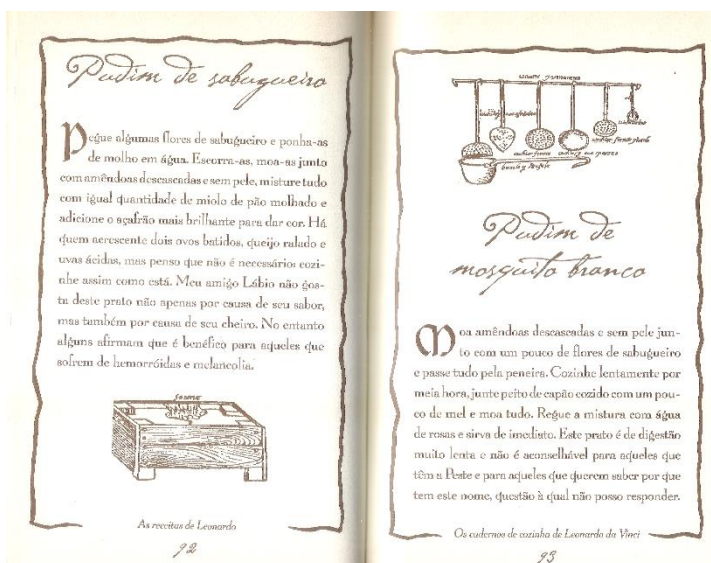 Pudim de sabugueiro
Pegue algumas flores de sabugueiro e ponha-as
de molho em água. Escorra-as, moa-as junto
com amêndoas descascadas e sem pele, misture tudo
com igual quantidade de miolo de pão molhado e
adicione o açafrão mais brilhante para dar cor. Há
quem acrescente dois ovos batidos, queijo ralado e
uvas ácidas, mas penso que não é necessário: cozi-
nhe assim como está. Meu amigo Lábio não gos-
ta deste prato não apenas por causa de seu sabor,
mas também por causa de seu cheiro. No entanto
alguns afirmam que é benéfico para aqueles que
sofrem de hemorróidas e melancolia.
As receitas de Leonardo
92
Pudim de
mosquito branco
Moa amêndoas descascadas e sem pele jun-
to com um pouco de flores de sabugueiro
e passe tudo pela peneira. Cozinhe lentamente por
meia hora, junte peito de capão cozido com um pou-
co de mel e moa tudo. Regue a mistura com água
de rosas e sirva de imediato. Este prato é de digestão
muito lenta e não é aconselhável para aqueles que
têm a Peste e para aqueles que querem saber por que
tem este nome, questão à qual não posso responder.
Os cadernos de cozinha de Leonardo da Vinci
93